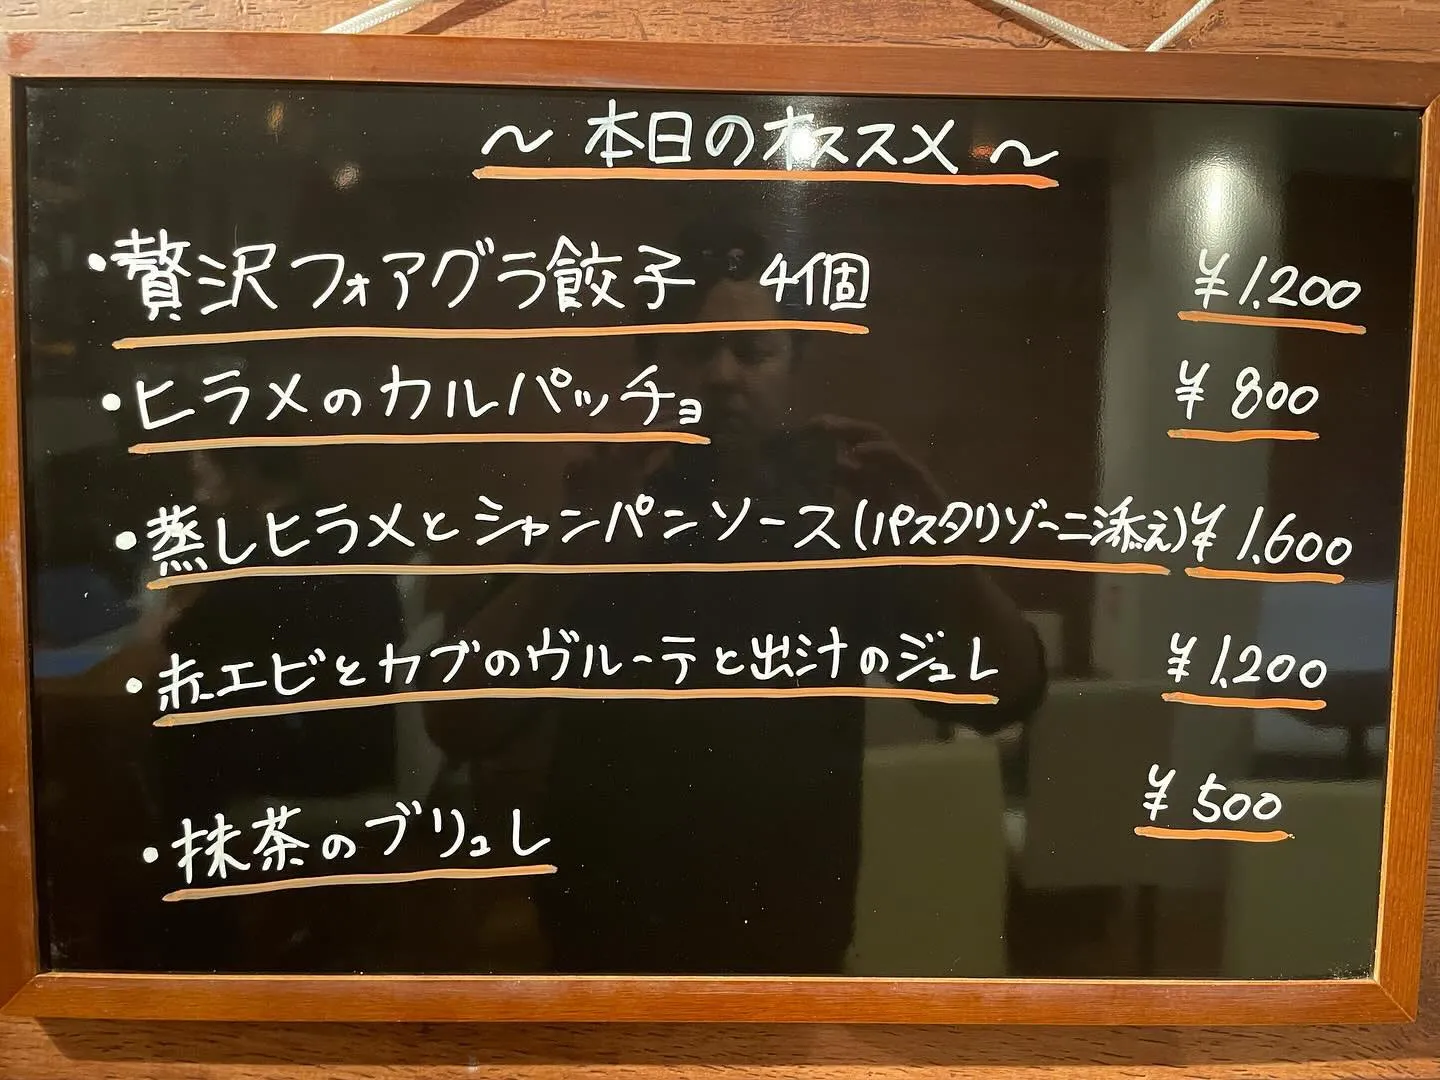 ～ 本日のオススメ ～
・贅沢フォアグラ餃子 4個 ¥1.200
・ヒラメのカルパッチョ ¥800
・蒸しヒラメとシャンパンソース(パスタリゾーニ添え) ¥1.600
・赤エビとカブのヴルーテと出汁のジュレ ¥1.200
・抹茶のブリュレ ¥500